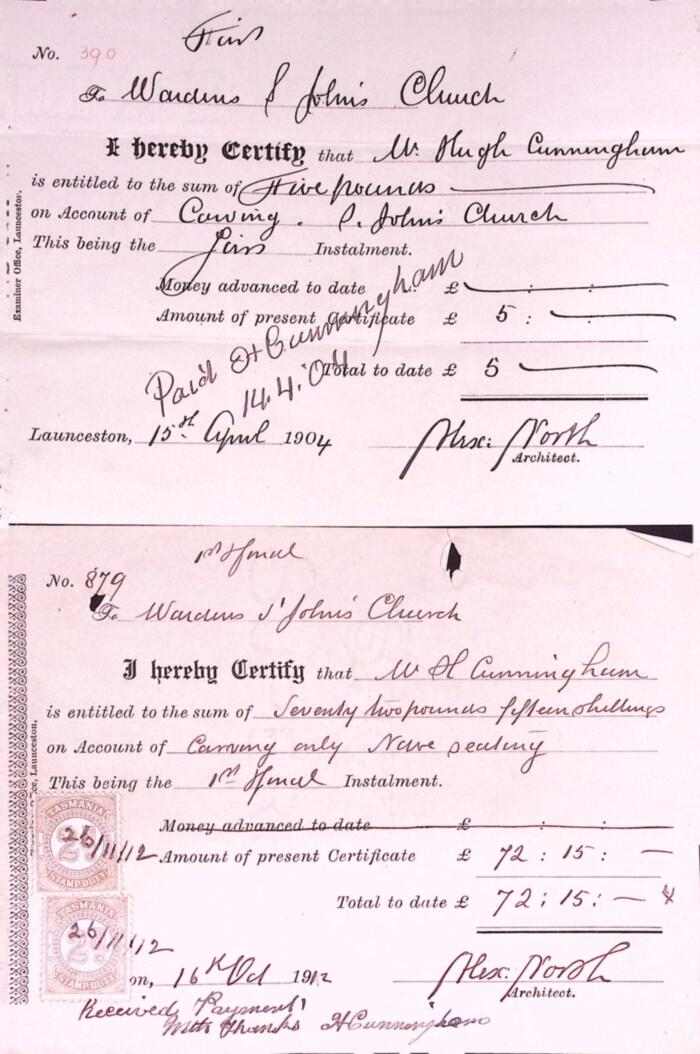 First
No. 390
To Wardens S Johns Church
I hereby Certify that Mr. Hugh Cunningham
is entitled to the sum of Five pounds
on Account of Carving. S. Johns Church
This being the First Instalment.
Money advanced to date £ : :
Amount of present Certificate £ 5 :
Total to date £ 5
Paid H Cunningham
14.4.04
Launceston, 15th April 1904
Alex: North
Architect.
Examiner Office, Launceston.
1st & Final
No. 879
To Wardens S' John's Church
I hereby Certify that Mr H Cunningham
is entitled to the sum of Seventy two pounds fifteen shillings
on Account of Carving only Nave seating
This being the 1st & Final Instalment.
Money advanced to date £ : :
Amount of present Certificate £ 72 : 15 : —
Total to date £ 72 : 15 : —
TASMANIA
26/11/12
STAMP DUTY
TASMANIA
26/11/12
STAMP DUTY
on, 16th Oct 1912
Alex: North
Architect.
Received Payment
With thanks H Cunningham
Office, Launceston.